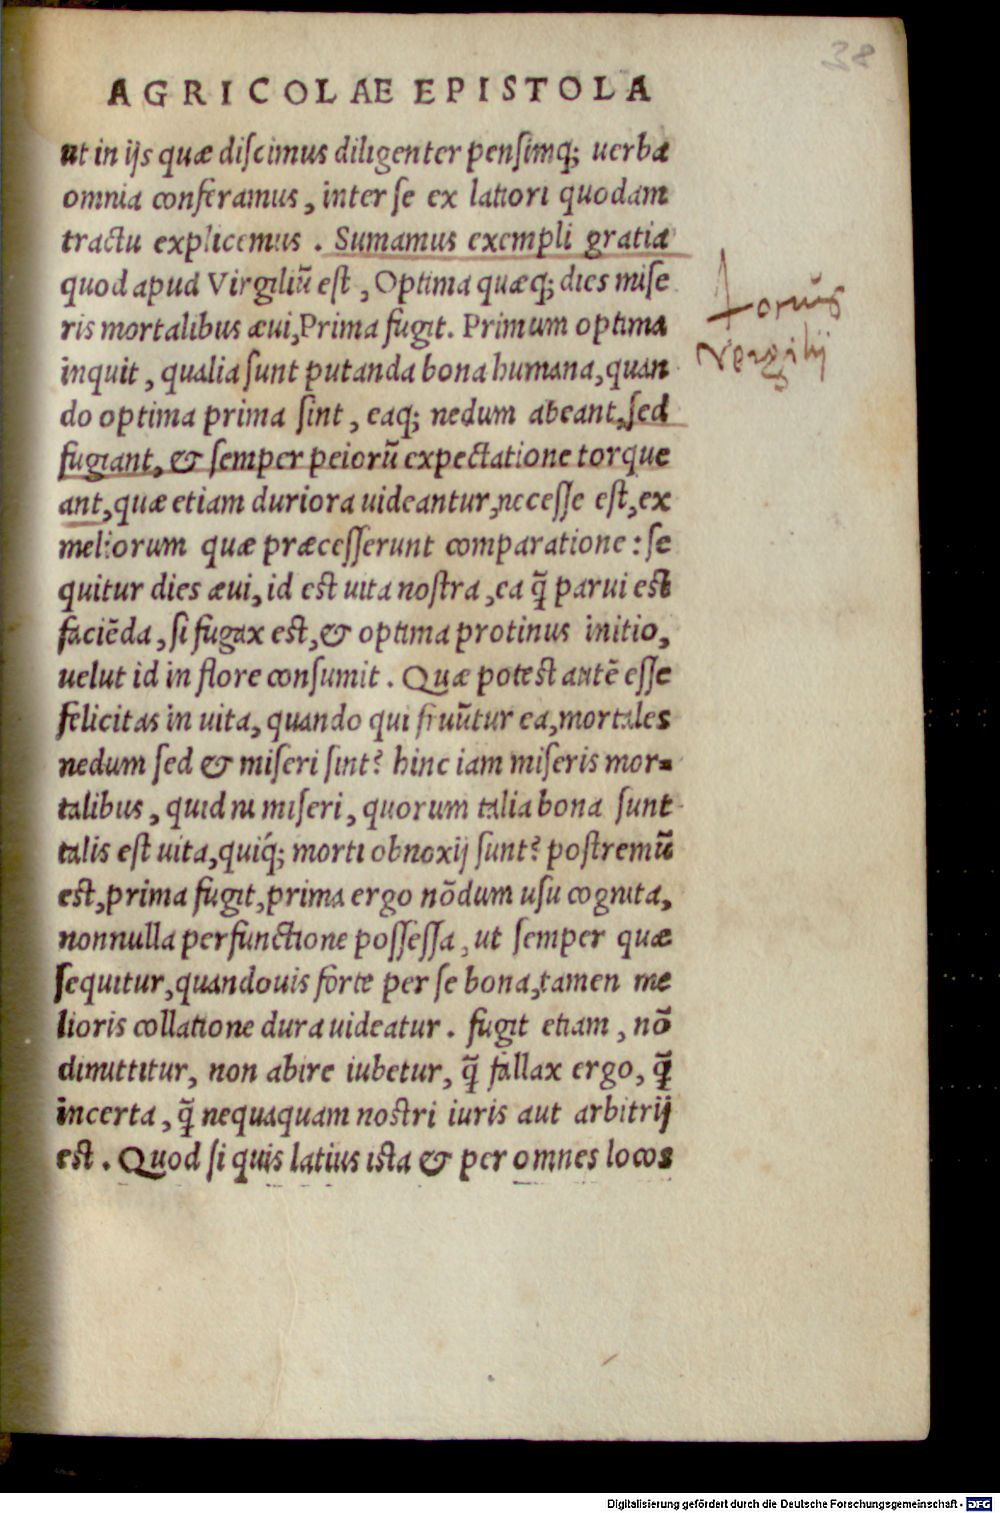 38
AGRICOLAE EPISTOLA
ut in ijs quæ discimus diligenter pensimq; uerba
omnia conferamus, inter se ex latiori quodam
tractu explicemus. Sumamus exempli gratia
quod apud Virgiliū est, Optima quæq; dies mise
ris mortalibus æui, Prima fugit. Primum optima
inquit, qualia sunt putanda bona humana, quan
do optima prima sint, eaq; nedum abeant, sed
fugiant, & semper peiorū expectatione torque
ant, quæ etiam duriora uideantur, necesse est, ex
meliorum quæ præcesserunt comparatione: se
quitur dies æui, id est uita nostra, ea q̃ parui est
faciēda, si fugax est, & optima protinus initio,
uelut id in flore consumit. Quæ potest autē esse
felicitas in uita, quando qui fruūtur ea, mortales
nedum sed & miseri sint? hinc iam miseris mor=
talibus, quid ni miseri, quorum talia bona sunt
talis est uita, quiq́; morti obnoxij sunt? postremū
est, prima fugit, prima ergo nōdum usu cognita,
nonnulla perfunctione possessa, ut semper quæ
sequitur, quandouis forte per se bona, tamen me
lioris collatione dura uideatur. fugit etiam, nō
dimittitur, non abire iubetur, q̃ fallax ergo, q̃
incerta, q̃ nequaquam nostri iuris aut arbitrij
est. Quod si quis latius ista & per omnes locos
Vergilij
Digitalisierung gefördert durch die Deutsche Forschungsgemeinschaft - DFG